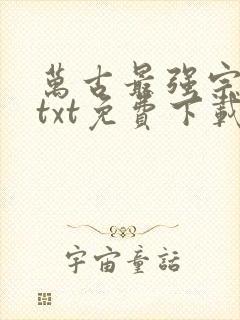 萬古最强宗
txt免費下載
宇宙童話